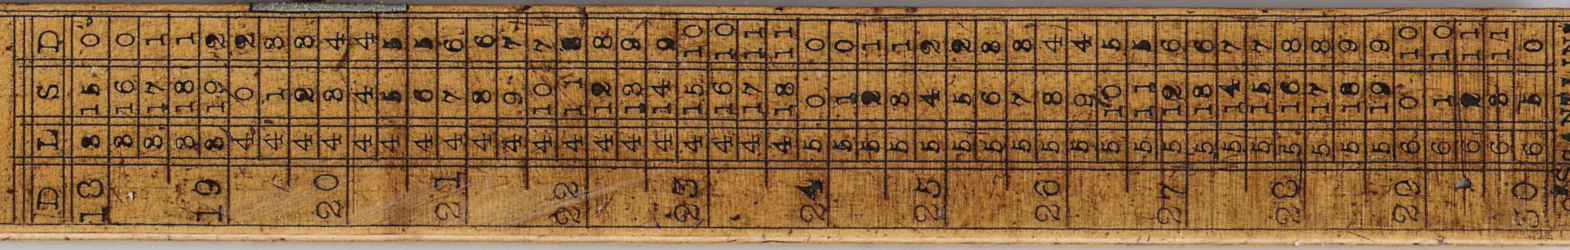 D 0 0 1 1 2 2 3 3 4 4 5 5 6 6 7 7 8 8 9 9 10 10 11 11 0 0 1 1 2 2 3 3 4 4 5 5 6 6 7 7 8 8 9 9 10 10 11 11 0
S 15 16 17 18 19 0 1 2 3 4 5 6 7 8 9 10 11 12 13 14 15 16 17 18 0 1 2 3 4 5 6 7 8 9 10 11 12 13 14 15 16 17 18 19 0 1 2 3 5
L 3 3 3 3 3 4 4 4 4 4 4 4 4 4 4 4 4 4 4 4 4 4 4 4 5 5 5 5 5 5 5 5 5 5 5 5 5 5 5 5 5 5 5 5 6 6 6 6 6
D 18 19 20 21 22 23 24 25 26 27 28 29 30